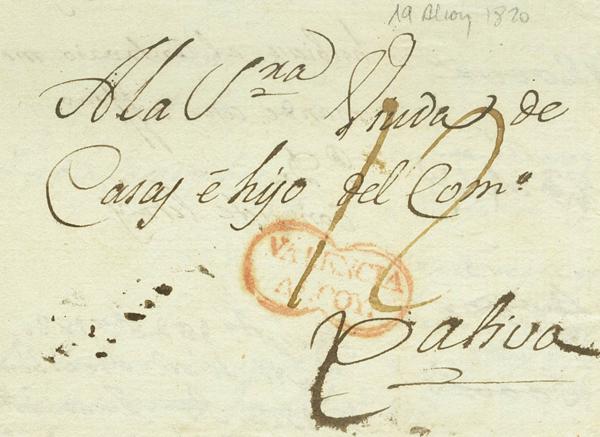 19 Alcoy 1820
A la Sra. Viuda de
Casas é hijo del Como.
12
VALENCIA
ALCOY.
Xativa